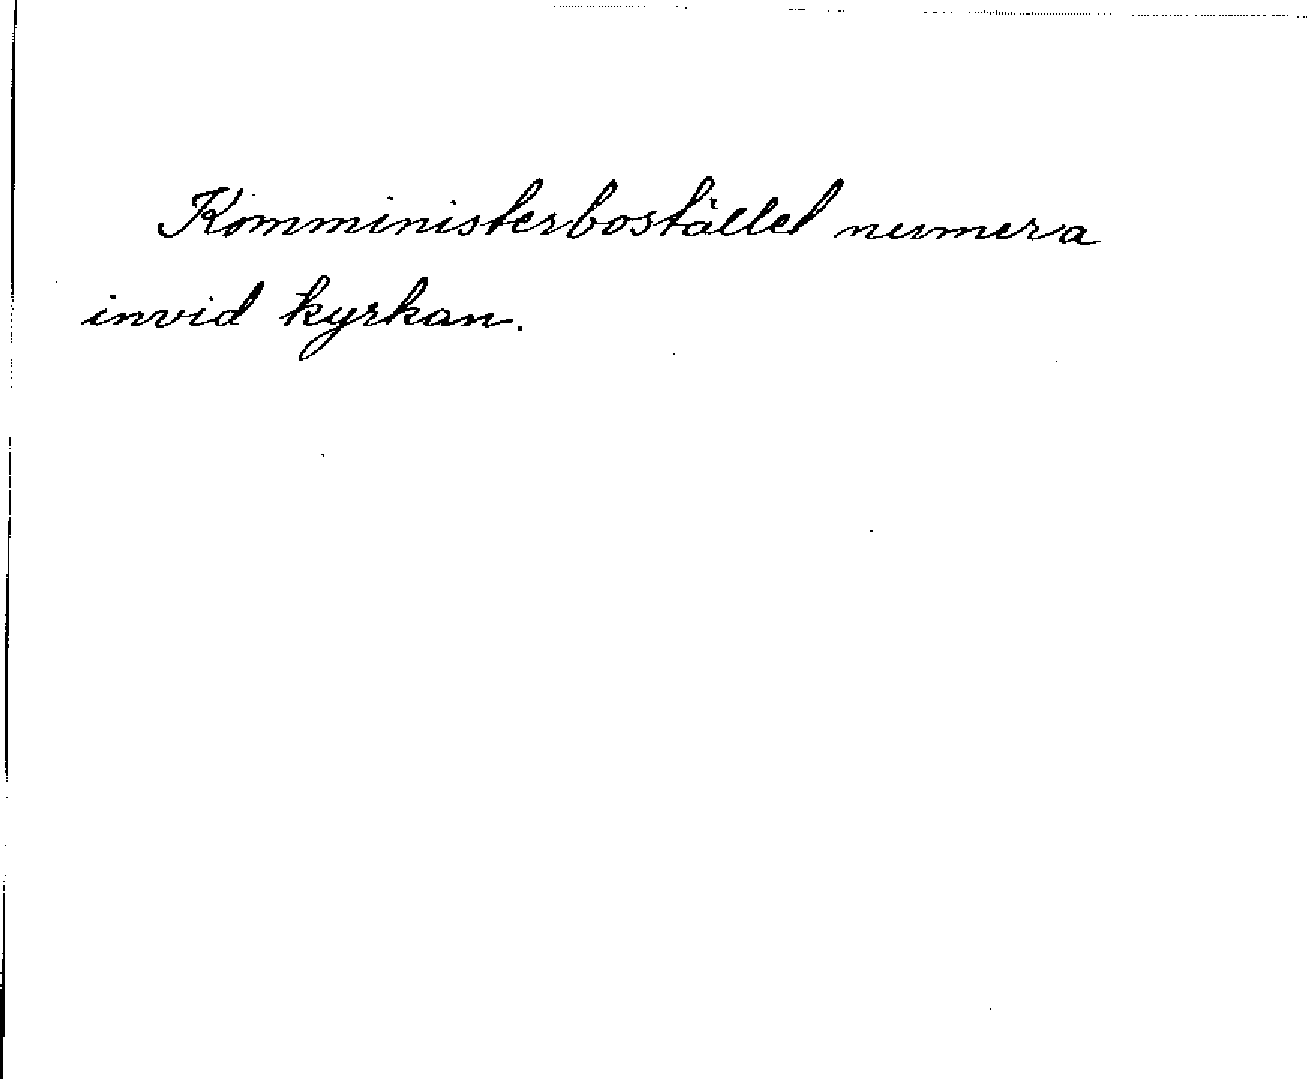 Komministerbostället numera
invid kyrkan.